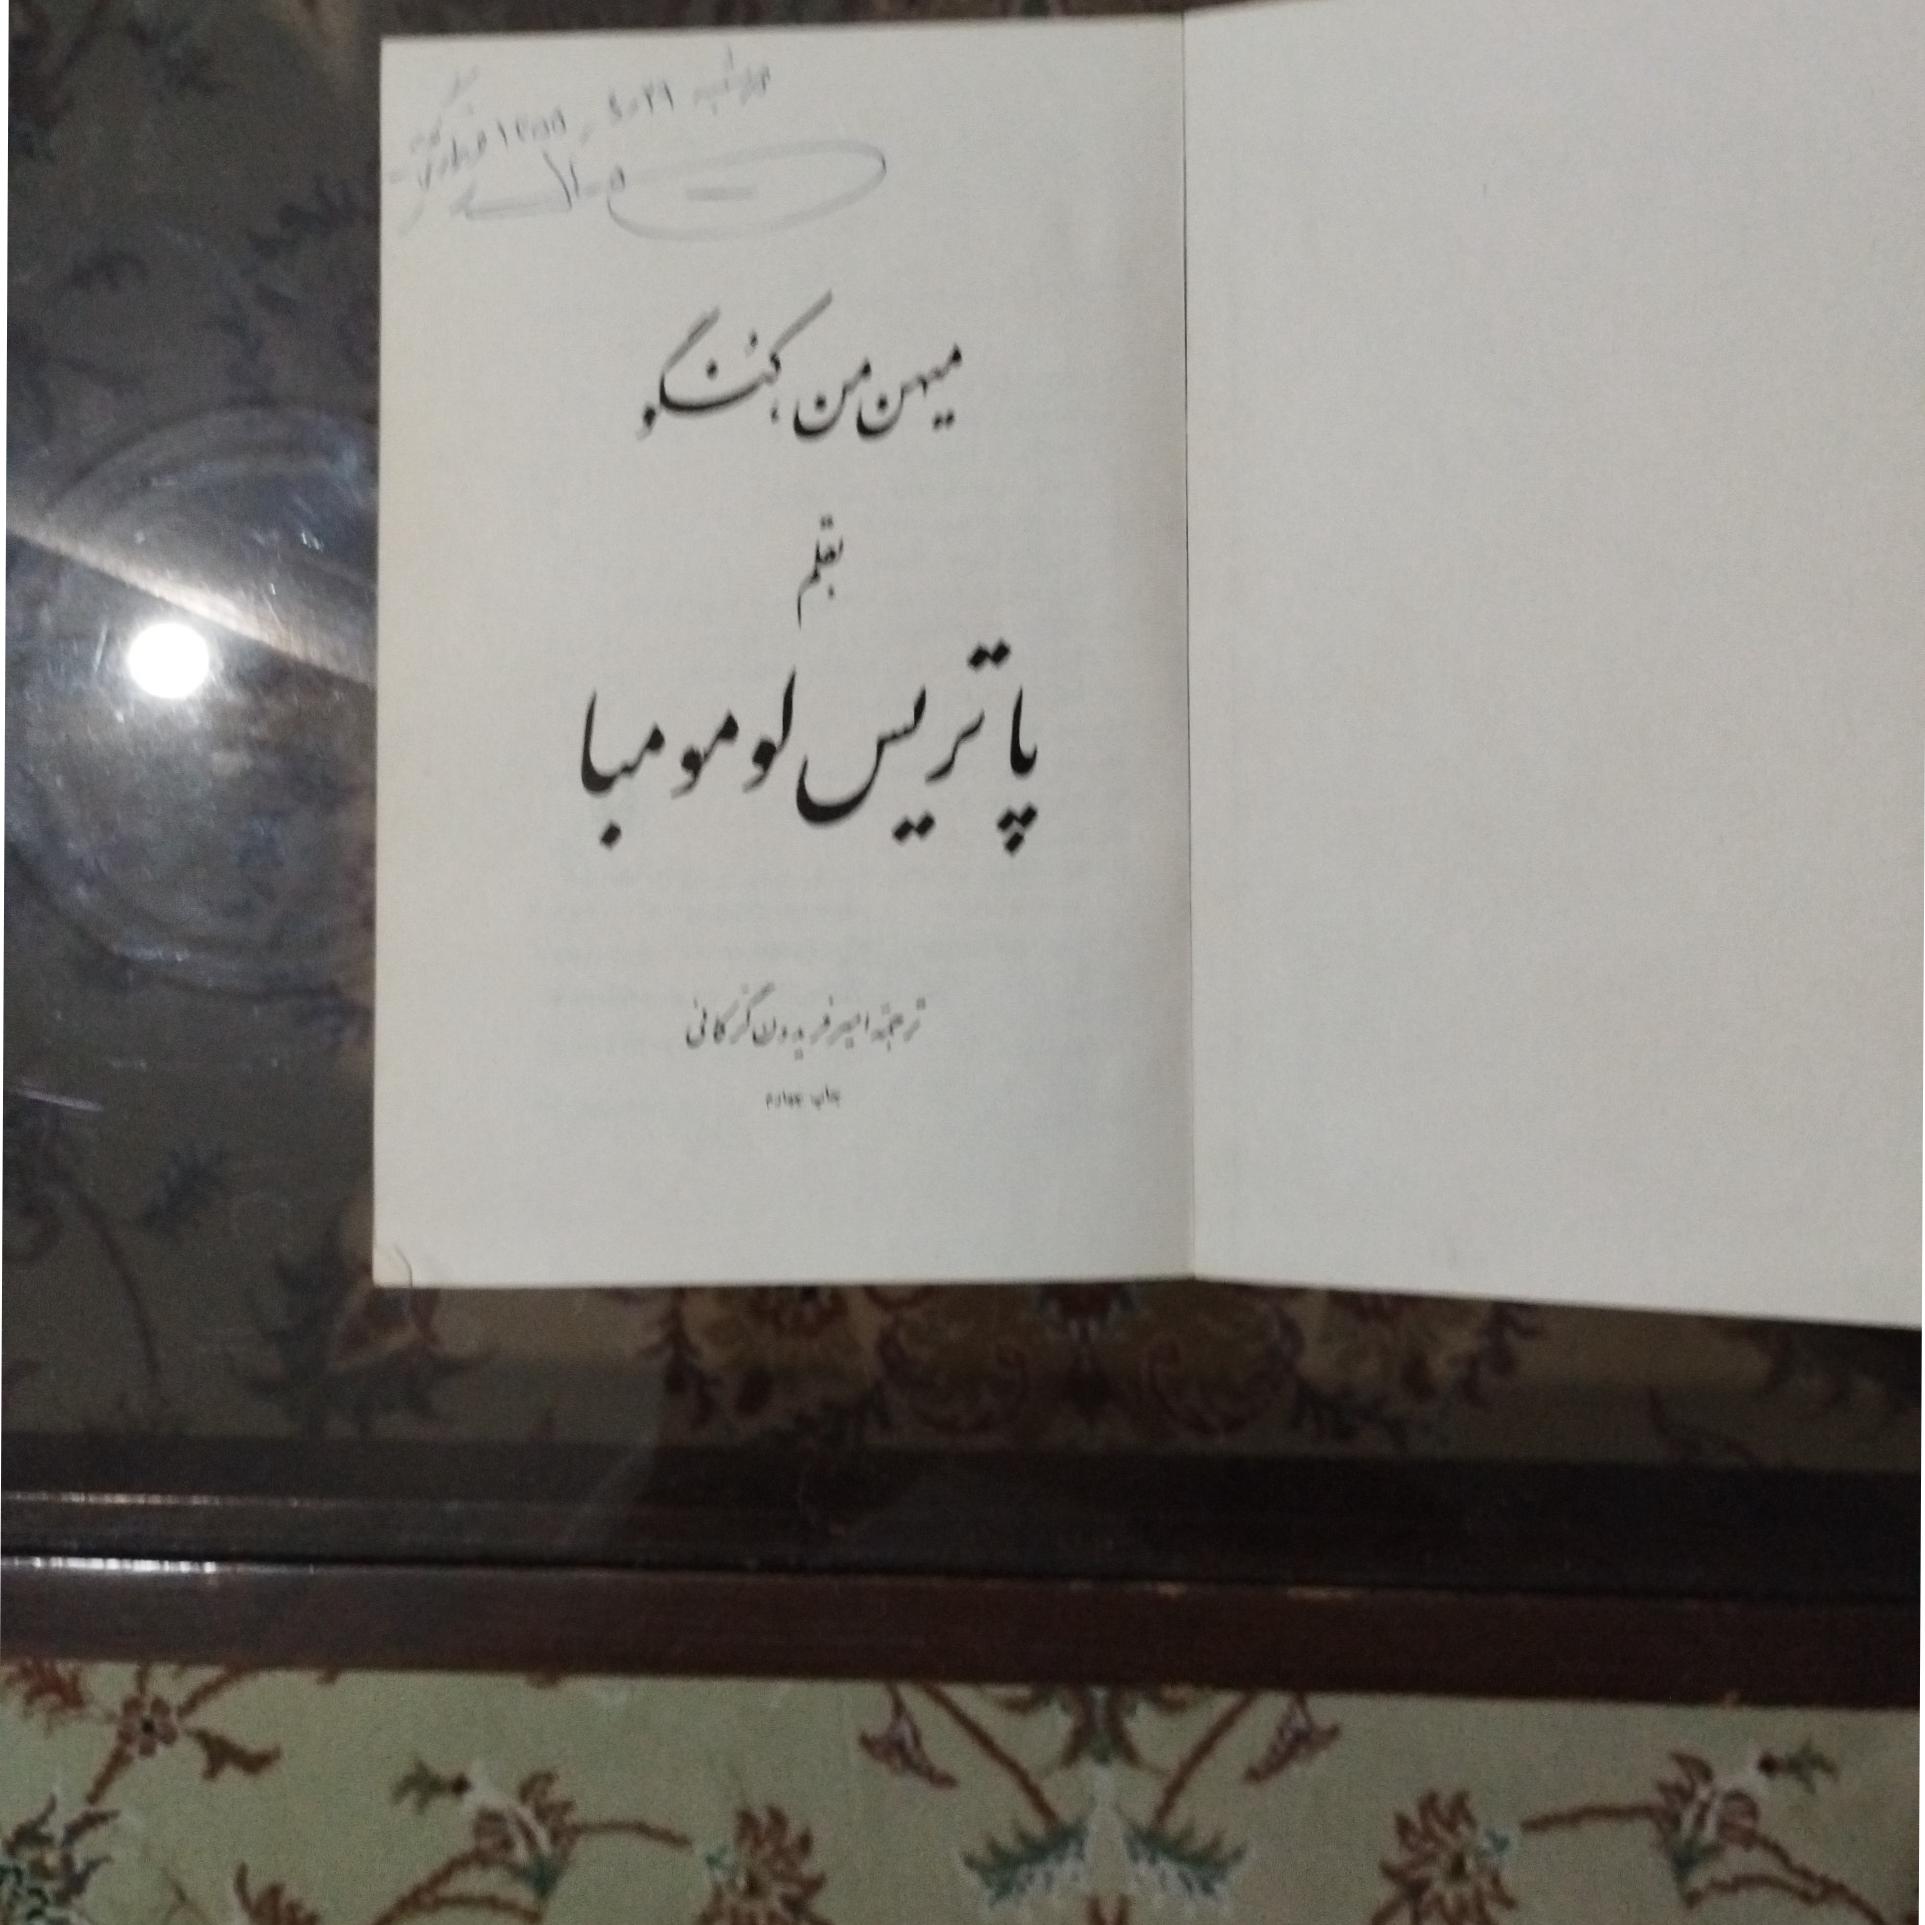 میهن من، کنگو
بقلم
پاتریس لومومبا
ترجمهٔ امیر فریدون گرکانی
چاپ چهارم